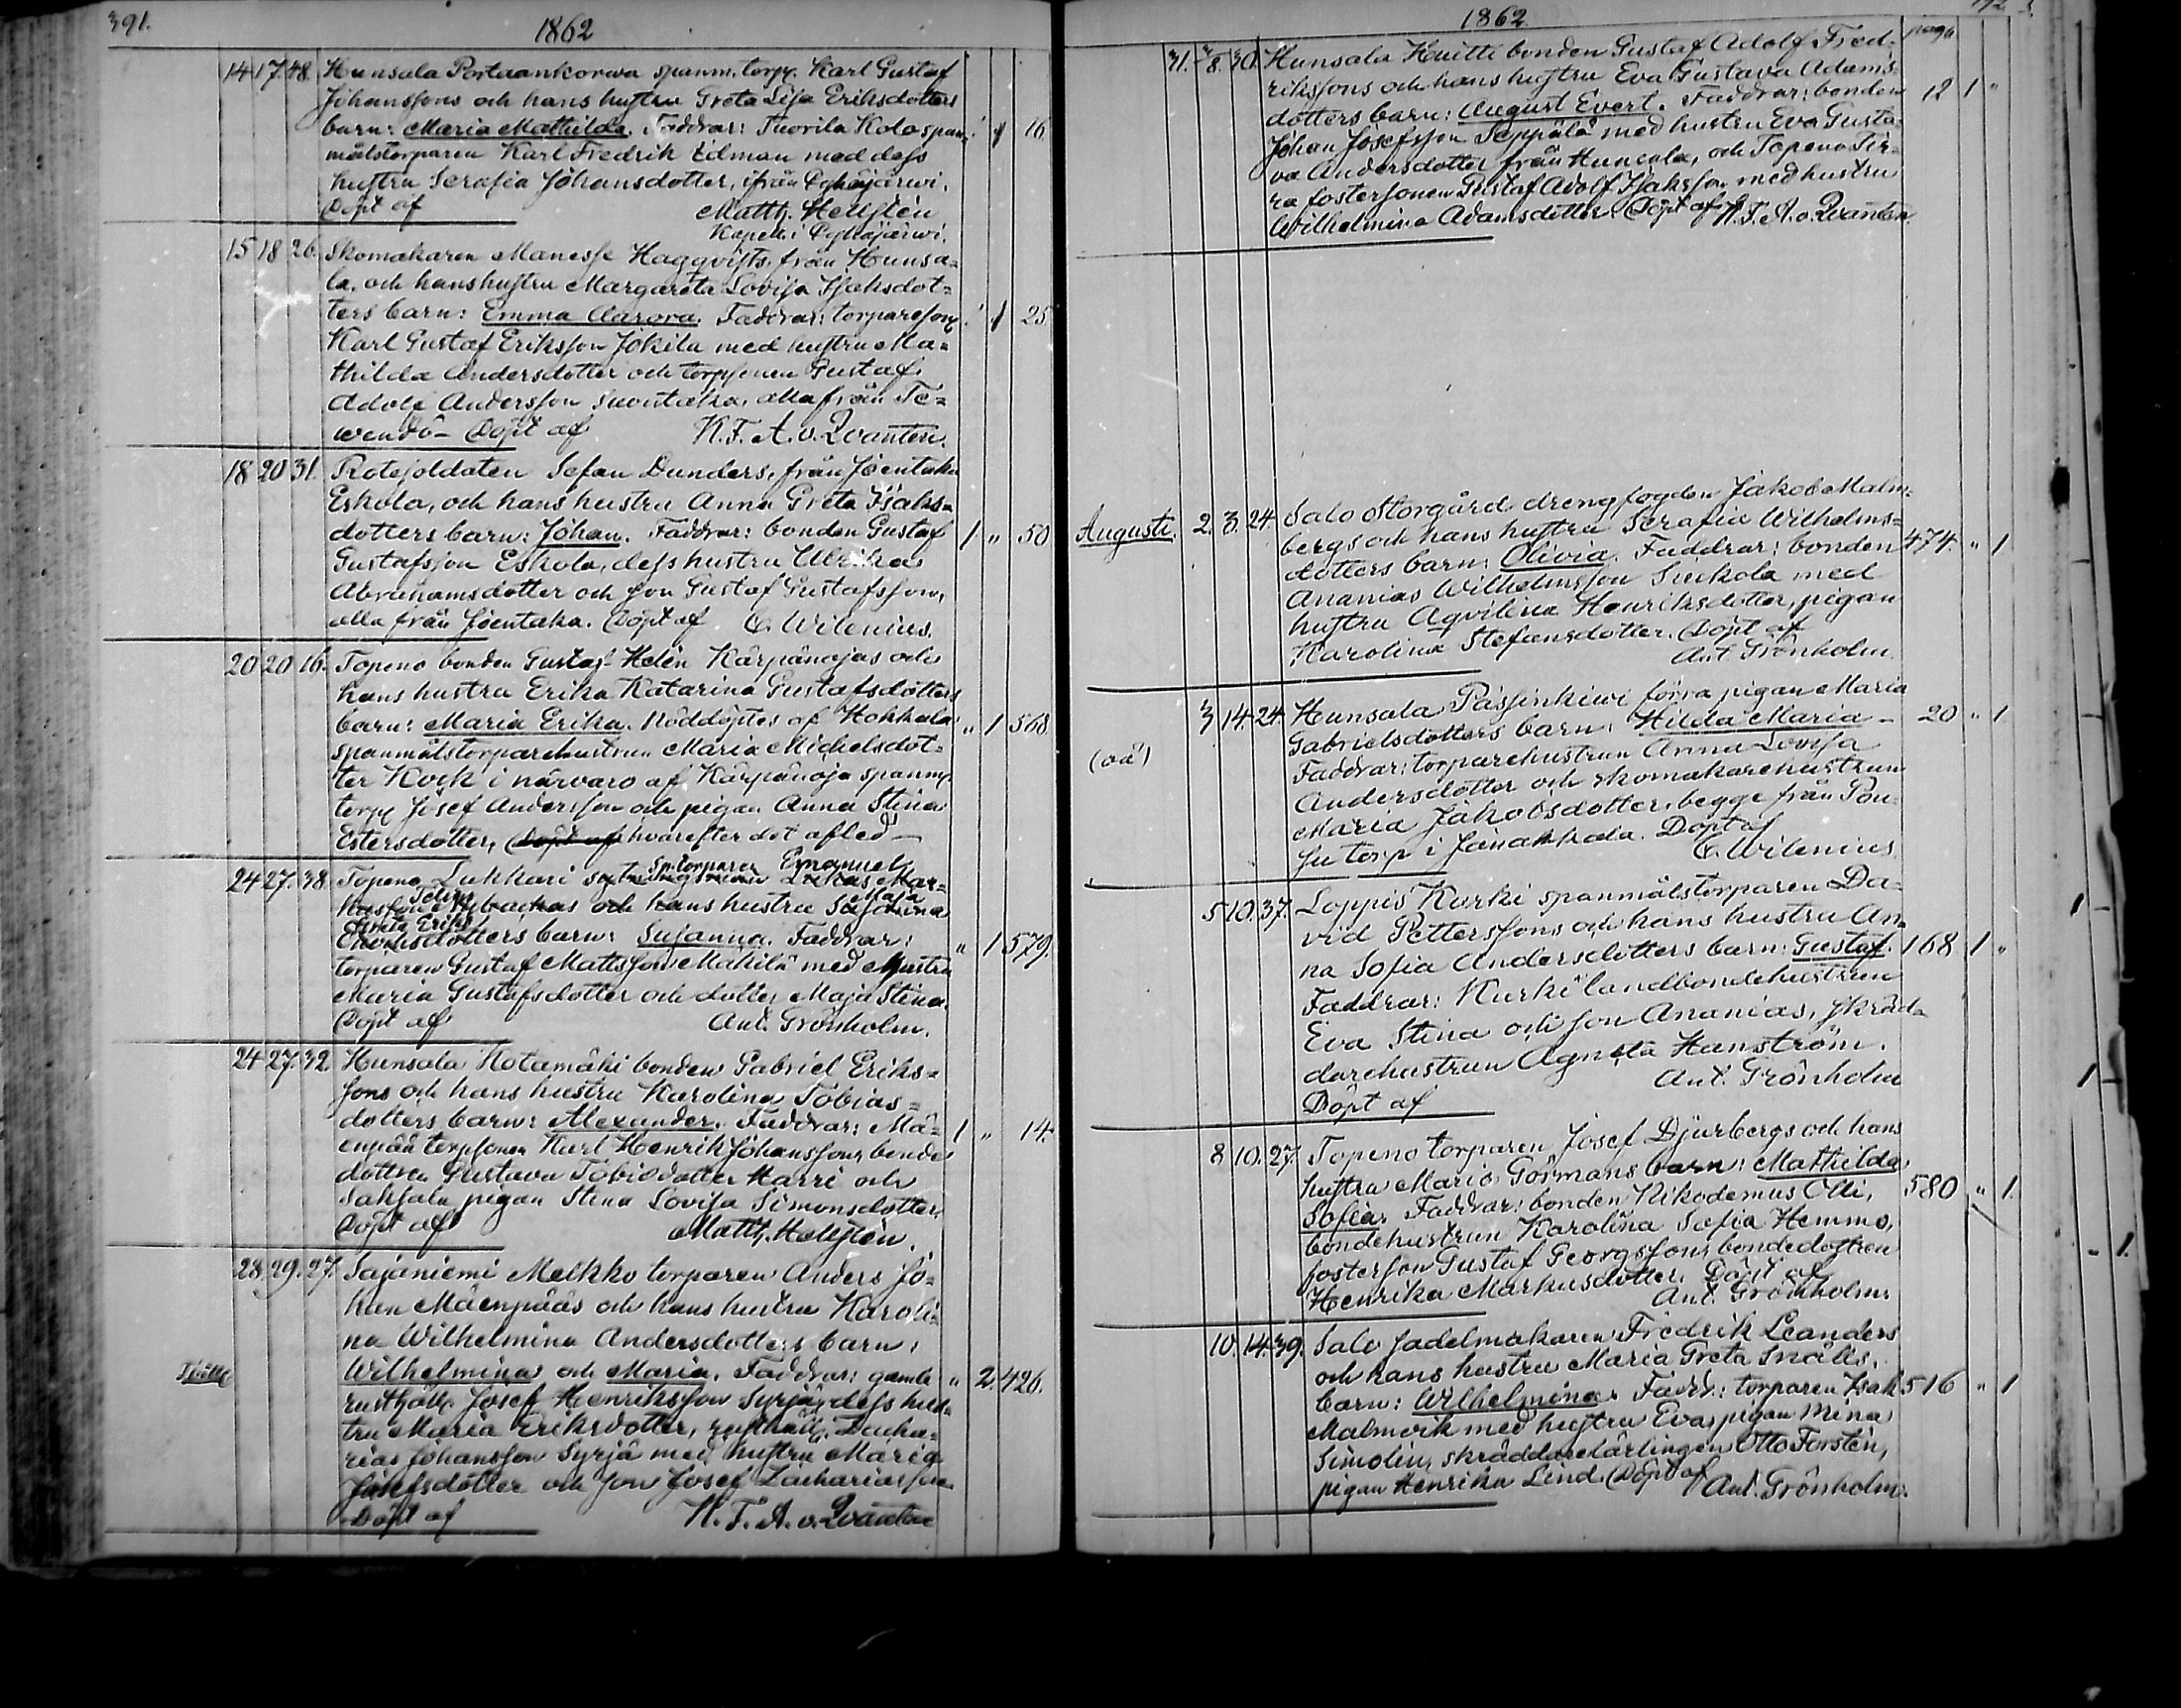 391.
1862
14 17. 48. Hunsala Portaankorwa spanm. torp. Karl Gustaf
Johanssons och hans hustru Greta Lisa Eriksdotters
barn: Maria Mathilda. Faddrar: Tuorila Kolo span- " 1 16
målstorparen Karl Fredrik Edman med dess
hustru Serafia Johansdotter, ifrån Pyhäjärwi.
Döpt af Matth. Hellsten
Kapell. i Pyhäjärwi.
15 18 26. Skomakaren Manasse Haggqvists från Hunsa-
la, och hans hustru Margareta Lovisa Isaksdot-
ters barn: Emma Aurora. Faddrar: torparesonen " 1 25
Karl Gustaf Eriksson Jokila med hustru Ma-
thilda Andersdotter och torpsonen Gustaf
Adolf Andersson Suontaka, alla från Te-
wendö - Döpt af K. F. A. v. Qvanten.
18 20 31. Rotesoldaten Sefan Dunders, från Joentaka
Eskola, och hans hustru Anna Greta Isaks-
dotters barn: Johan. Faddrar: bonden Gustaf 1 " 50
Gustafsson Eskola, dess hustru Ulrika
Abrahamsdotter och son Gustaf Gustafsson,
alla från Joentaka. Döpt af C. Wilenius.
20 20 16. Topeno bonden Gustaf Helén Kärpänojas och
hans hustru Erika Katarina Gustafsdotters
barn: Maria Erika. Nöddöptes af Hokkala " 1 568
spanmålstorparehustrun Maria Michelsdot-
ter Kock i närvaro af Kärpänoja spanm.
torp. Josef Andersson och pigan Anna Stina
Estersdotter, Döpt af hvarefter det afled -
24 27. 38 Topeno Lukkari Sp. torparen Emanuel
och hans hustru Maja
Greta Eriks
dotters barn: Susanna. Faddrar: " 1 579.
torparen Gustaf Mattsson Mäkilä med hustru
Maria Gustafsdotter och dotter Maja Stina.
Döpt af Ant. Grönholm.
24 27. 32. Hunsala Hotamäki bonden Gabriel Eriks-
sons och hans hustru Karolina Tobias-
dotters barn: Alexander. Faddrar: Mä- 1 " 14.
enpää torpsonen Karl Henrik Johansson, bonde
dottren Gustava Tobisdotter Harri och
Sahsala pigan Stina Lovisa Simonsdotter.
Döpt af Matth. Hellsten.
28 29. 27. Sajaniemi Melkko torparen Anders Jo-
han Mäenpääs och hans hustru Karoli-
na Wilhelmina Andersdotters barn:
Wilhelmina och Maria. Faddrar: gamle " 2. 426.
rusthåll. Josef Henriksson Syrjä, dess hus-
tru Maria Eriksdotter, rusthåll. Zacha-
rias Johansson Syrjä med hustru Maria
Josefsdotter och son Josef Zachariasson
Döpt af K. F. A. v. Qvanten
1862
pag.
31. 8. 30. Hunsala Huitti bonden Gustaf Adolf Fred-
rikssons och hans hustru Eva Gustava Adams-
dotters barn: August Evert. Faddrar: bonden 12 1 "
Johan Josefsson Seppälä med hustru Eva Gusta-
va Andersdotter från Huncala, och Topeno Tir-
ra fostersonen Gustaf Adolf Isaksson med hustru
Wilhelmina Adamsdotter. Döpt af K. F. A. v. Qvanten.
Augusti. 2. 3. 24. Salo Storgård drengfogden Jakob Malm-
bergs och hans hustru Serafia Wilhelms-
dotters barn: Olivia. Faddrar: bonden 474. " 1
Ananias Wilhelmsson Suikola med
hustru Aqvilina Henriksdotter, pigan
Karolina Stefansdotter. Döpt af
Ant. Grönholm.
(oä) 3 14. 24. Hunsala Passinkiwi förra pigan Maria
Gabrielsdotters barn: Hilda Maria - 20 " 1
Faddrar: torparehustrun Anna Lovisa
Andersdotter och skomakarehustrun
Maria Jakobsdotter, begge från Pou-
su torp i Janakkala. Döpt af
C. Wilenius
5 10. 37. Loppis Kurki spanmålstorparen Da-
vid Petterssons och hans hustru An-
na Sofia Andersdotters barn: Gustaf. 168 1 "
Faddrar: Kurki landbondehustrun
Eva Stina och son Ananias, skräd-
darehustrun Agneta Hanström.
Döpt af Ant. Grönholm
8 10. 27. Topeno torparen Josef Djurbergs och hans
hustru Maria Görmans barn: Mathilda
Sofia. Faddrar: bonden Nikodemus Olli, 580 " 1.
bondehustrun Karolina Sofia Hemmo,
fosterson Gustaf Georgsson, bondedottren
Henrika Markusdotter. Döpt af
Ant. Grönholm.
10. 14. 39. Salo sadelmakaren Fredrik Leanders
och hans hustru Maria Greta Snälls
barn: Wilhelmina. Faddr.: torparen Isak 516 " 1
Malmvik med hustru Eva, pigan Mina
Simolin, skräddarelärlingen Otto Forstén,
pigan Henrika Lind. Döpt af Ant. Grönholm.